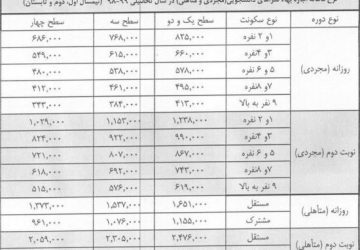 نرخ اجاره بهاء سراهای دانشجویی(مجردی و متاهلی) در سال تحصیلی ۹۹-۹۸ (نیمسال اول، دوم و تابستان)
نوع دوره نوع سکونت سطح یک و دو سطح سه سطح چهار
روزانه (مجردی)
۱و ۲ نفره ۸۲۵,۰۰۰ ۷۶۸,۰۰۰ ۶۸۶,۰۰۰
۳و ۴نفره ۶۶۰,۰۰۰ ۶۱۵,۰۰۰ ۵۴۹,۰۰۰
۵ و ۶ نفره ۵۷۸,۰۰۰ ۵۳۸,۰۰۰ ۴۸۰,۰۰۰
۷و ۸نفره ۴۹۵,۰۰۰ ۴۶۱,۰۰۰ ۴۱۲,۰۰۰
۹ نفر به بالا ۴۱۳,۰۰۰ ۳۸۴,۰۰۰ ۳۴۳,۰۰۰
نوبت دوم (مجردی)
۱و ۲ نفره ۱,۲۳۸,۰۰۰ ۱,۱۵۳,۰۰۰ ۱,۰۲۹,۰۰۰
۳و ۴نفره ۹۹۰,۰۰۰ ۹۲۲,۰۰۰ ۸۲۴,۰۰۰
۵ و ۶ نفره ۸۶۷,۰۰۰ ۸۰۷,۰۰۰ ۷۲۱,۰۰۰
۷و ۸نفره ۷۴۳,۰۰۰ ۶۹۲,۰۰۰ ۶۱۸,۰۰۰
۹ نفر به بالا ۶۱۹,۰۰۰ ۵۷۶,۰۰۰ ۵۱۵,۰۰۰
روزانه (متأهلی)
مستقل ۱,۶۵۱,۰۰۰ ۱,۵۳۷,۰۰۰ ۱,۳۷۳,۰۰۰
مشترک ۱,۱۵۵,۰۰۰ ۱,۰۷۶,۰۰۰ ۹۶۱,۰۰۰
نوبت دوم (متأهلی)
مستقل ۲,۴۷۶,۰۰۰ ۲,۳۰۵,۰۰۰ ۲,۰۵۹,۰۰۰